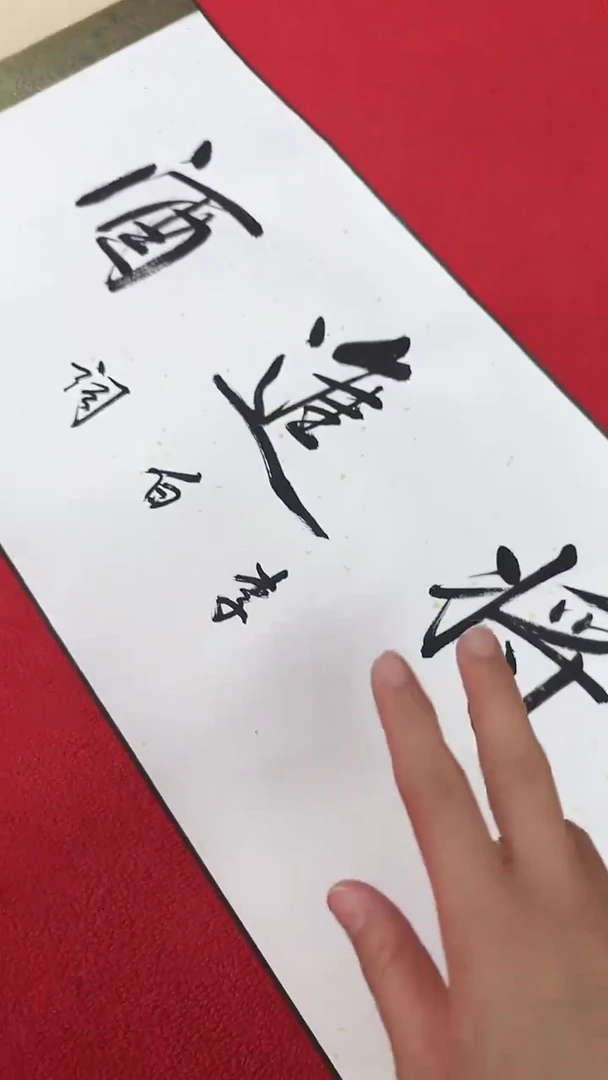 将進酒
李白詞